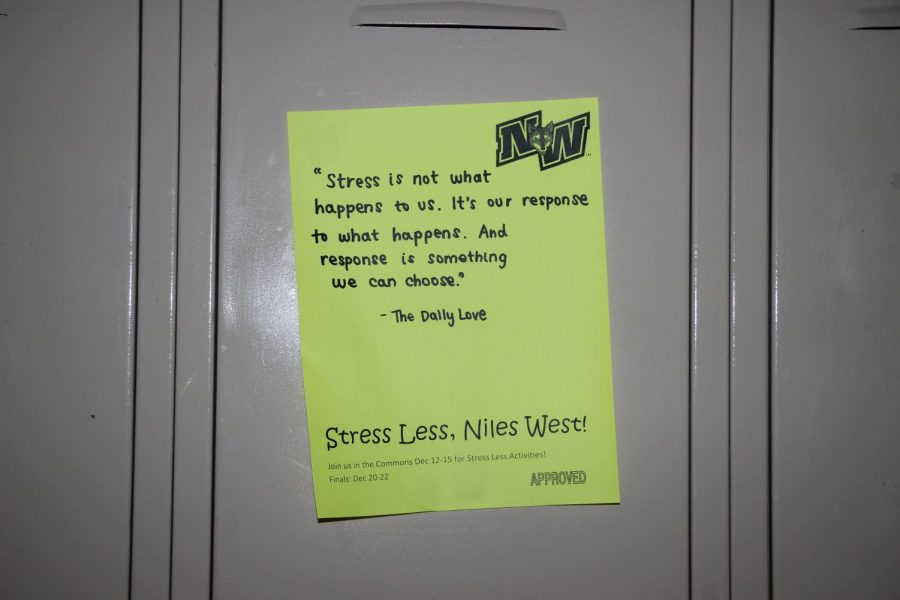 NW
"Stress is not what
happens to us. It's our response
to what happens. And
response is something
we can choose."
- The Daily Love
Stress Less, Niles West!
Join us in the Commons Dec 12-15 for Stress Less Activities!
Finals: Dec 20-22
APPROVED